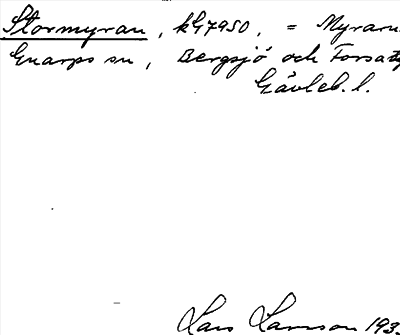 Stormyran, kG7950, = Myrarna
Gnarps sn, Bergsjö och Forsa
Gävleb. l.
Lars Larsson 193